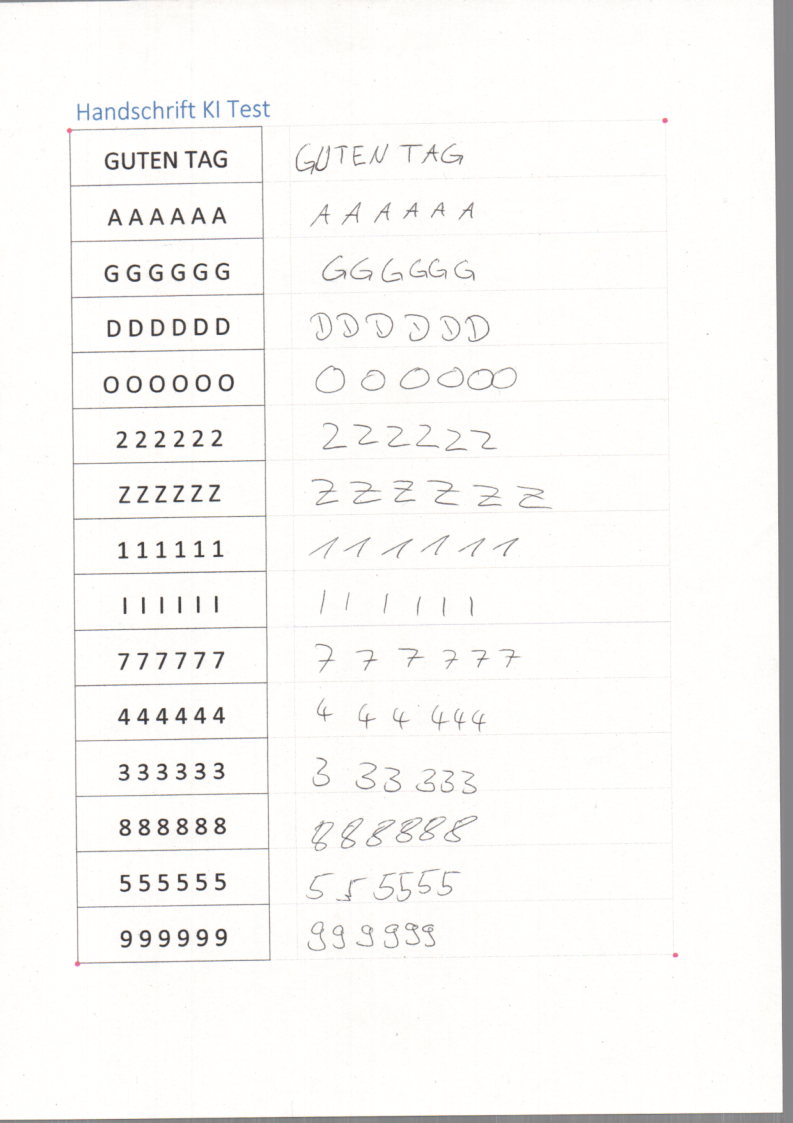 Handschrift KI Test
GUTEN TAG GUTEN TAG
A A A A A A A A A A A A
G G G G G G G G G G G G
D D D D D D D D D D D D
O O O O O O O O O O O O
2 2 2 2 2 2 2 2 2 2 2 2
Z Z Z Z Z Z Z Z Z Z Z Z
1 1 1 1 1 1 1 1 1 1 1 1
I I I I I I I I I I I I
7 7 7 7 7 7 7 7 7 7 7 7
4 4 4 4 4 4 4 4 4 4 4 4
3 3 3 3 3 3 3 3 3 3 3 3
8 8 8 8 8 8 8 8 8 8 8 8
5 5 5 5 5 5 5 5 5 5 5 5
9 9 9 9 9 9 9 9 9 9 9 9